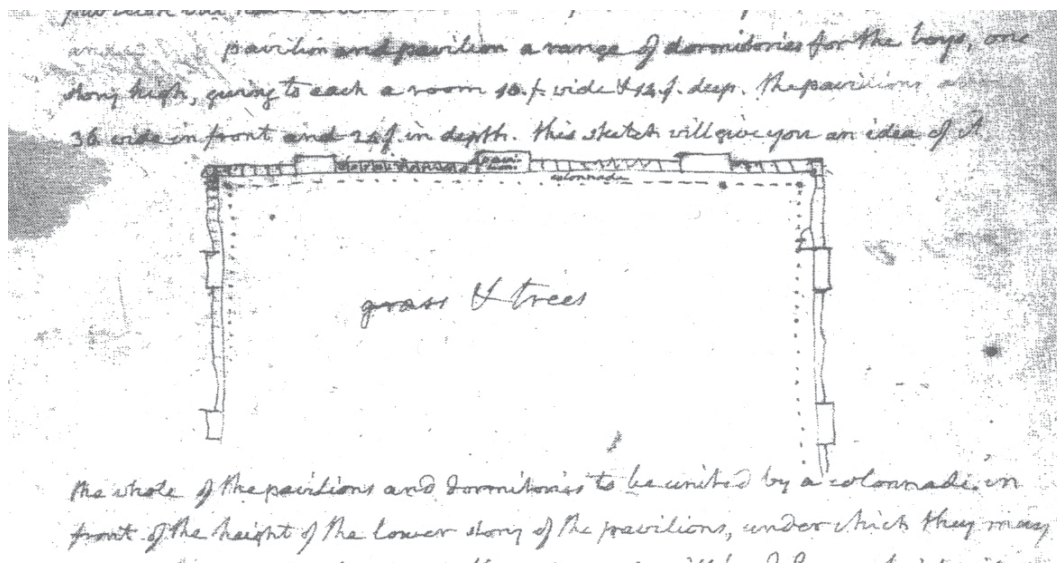 pavilion and pavilion a range of dormitories for the boys, one
story high, giving to each a room 10. f. wide & 14. f. deep. the pavilions
36 wide in front and 24 f. in depth. this sketch will give you an idea of it
pavilion
colonnade
grass & trees
the whole of the pavilions and dormitories to be united by a colonnade in
front of the height of the lower story of the pavilions, under which they may